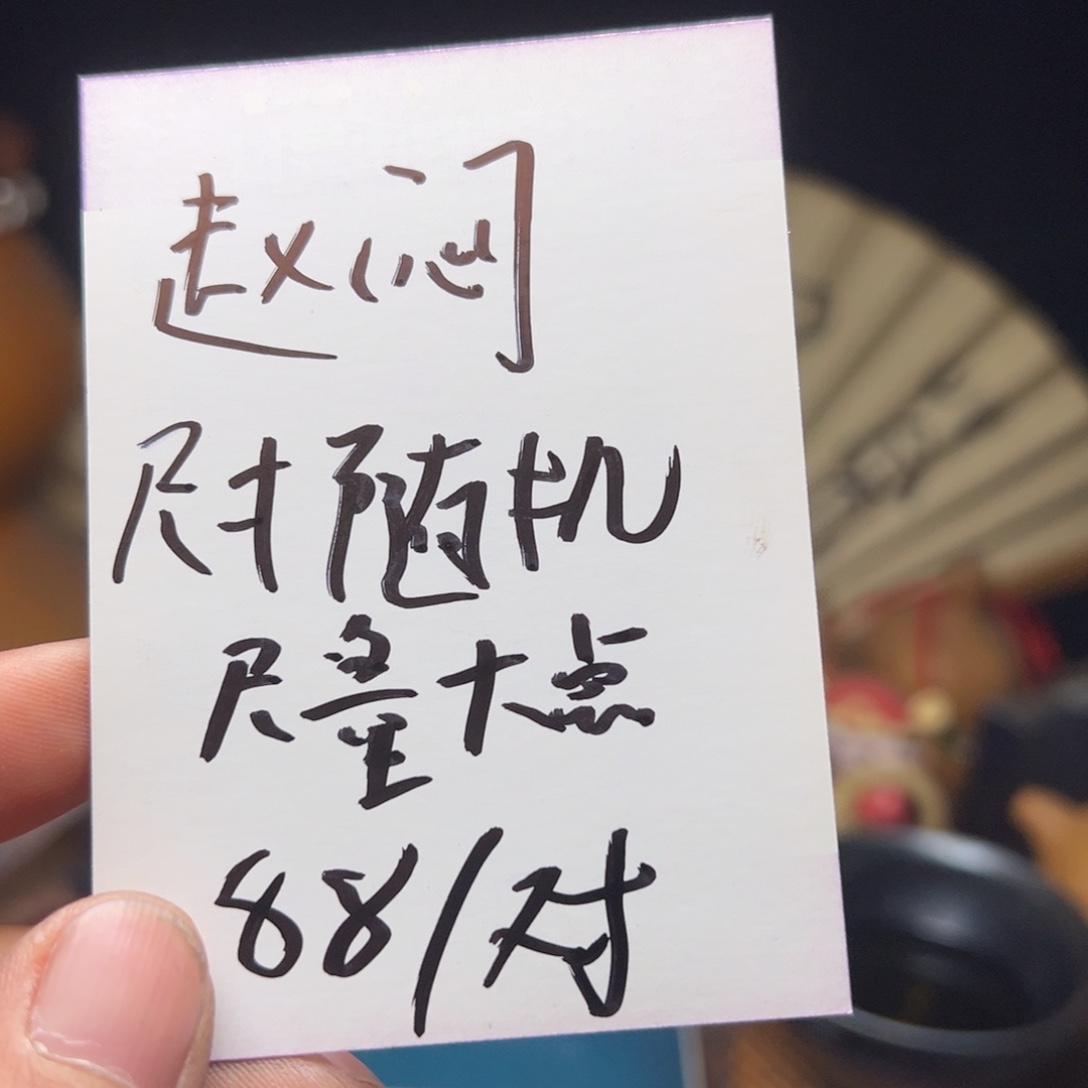 赵闷
尺寸随机
尽量大点
88/对